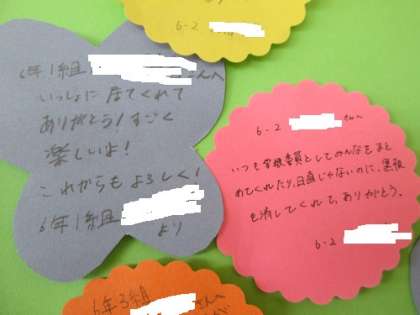 6-2
6年1組 さんへ
いっしょに いてくれて
ありがとう！すごく
楽しいよ！
これからもよろしく！
6年1組
より
6-2 さんへ
いつも学級委員としてみんなをまと
めてくれたり、日直じゃないのに、黒板
を消してくれて、ありがとう。
6-2
6年3組 さんへ